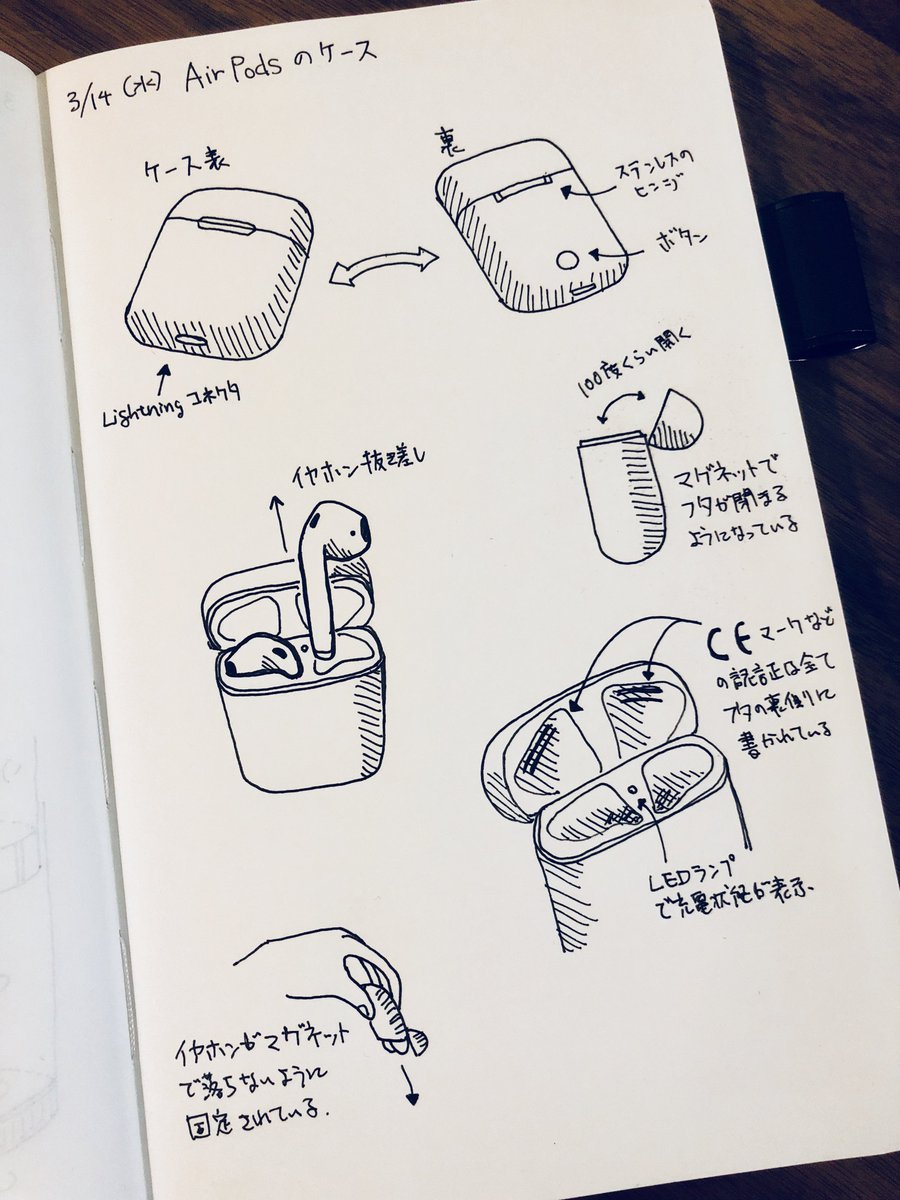 3/14(水) AirPodsのケース
ケース表
裏
ステンレスの
ヒンジ
ボタン
Lightningコネクタ
100度くらい開く
マグネットで
フタが閉まる
ようになっている
イヤホン抜き差し
CEマークなど
の認証は全て
フタの裏側に
書かれている
LEDランプ
で充電状態が表示、
イヤホンがマグネット
で落ちないように
固定されている.